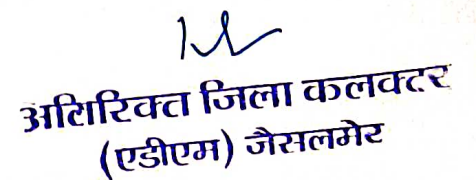 अतिरिक्त जिला कलक्टर
(एडीएम) जैसलमेर